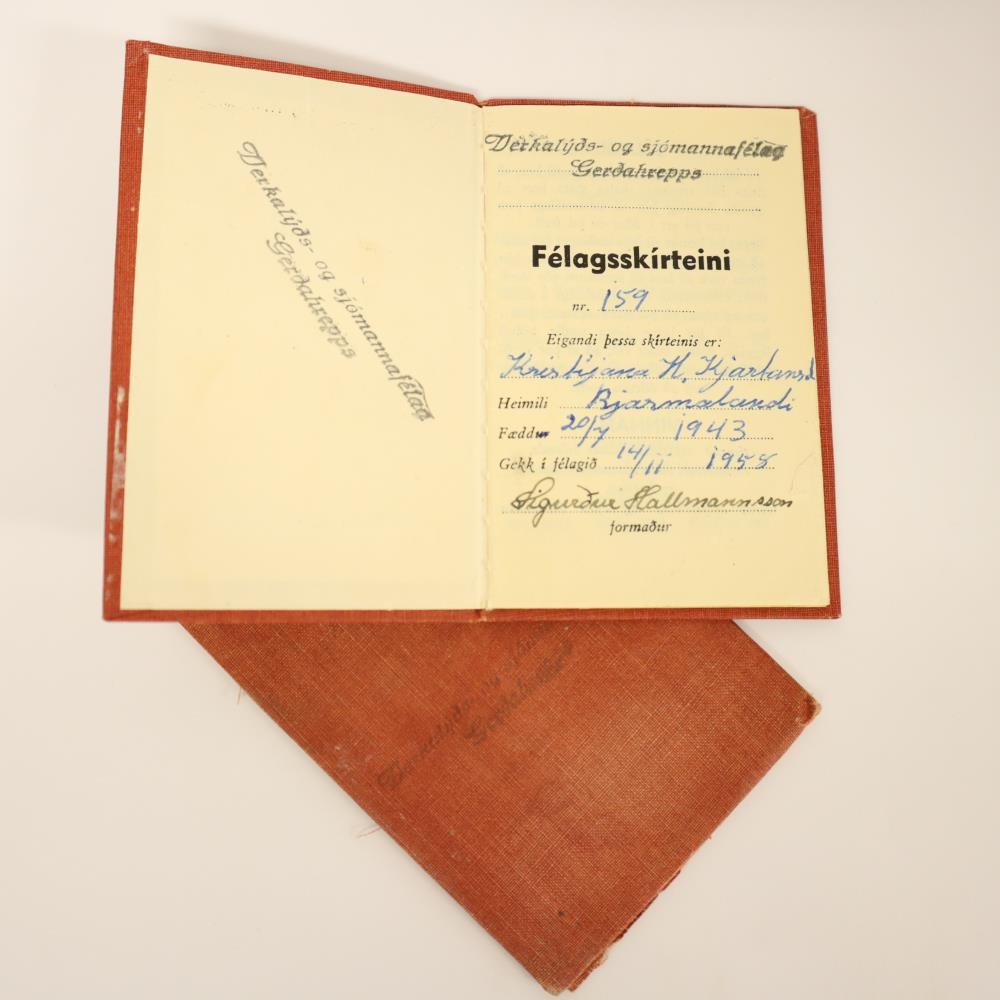 Verkalýðs- og sjómannafélag
Gerðahrepps
Verkalýðs- og sjómannafélag
Gerðahrepps
Félagsskírteini
nr. 159
Eigandi þessa skírteinis er:
Kristjana H. Kjartansd
Heimili Bjarmalandi
Fæddur 20/7 1943
Gekk í félagið 14/11 1958
Sigurður Hallmannsson
formaður
Verkalýðs- og